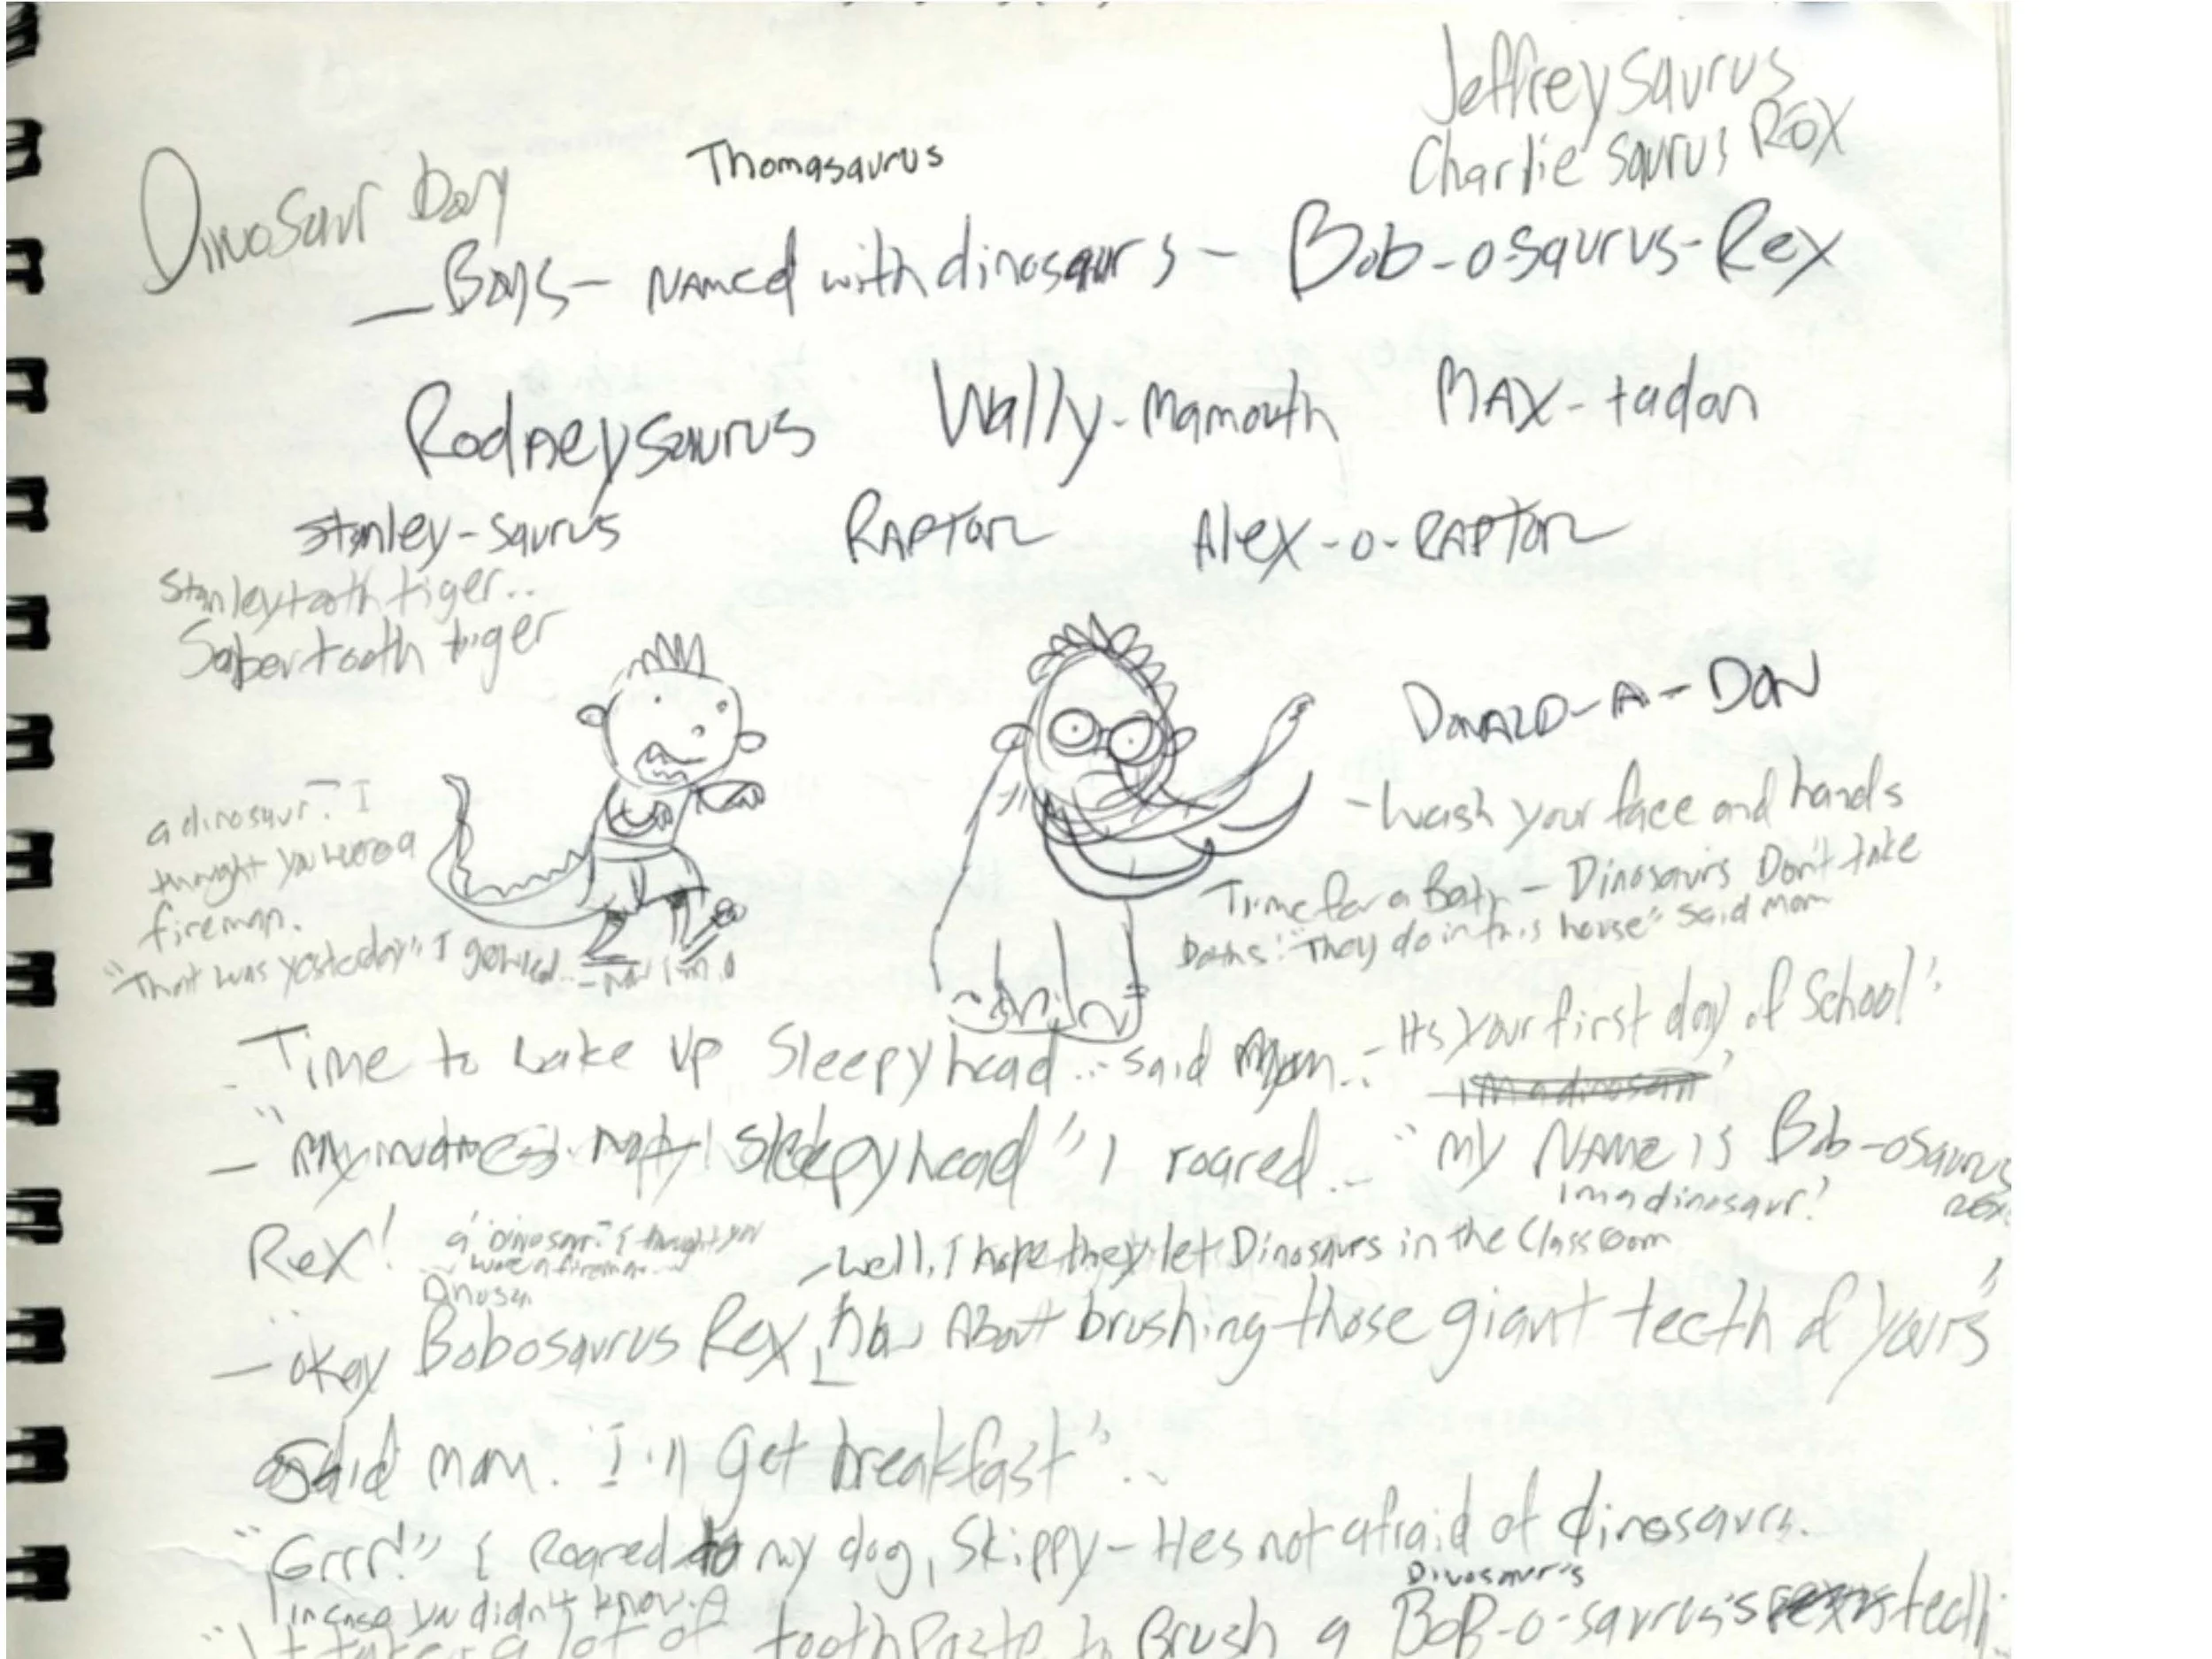 Jeffreysaurus
Charlie saurus Rex
Thomasaurus
Dinosaur Day
– Boys – Named with dinosaurs – Bob-o-saurus-Rex
Rodneysaurus Wally-Mamouth MAX-tadon
Stanley-saurus RAPTOR Alex-o-RAPTOR
Stanleytooth tiger..
Sabertooth tiger
DONALD-A-DON
- wash your face and hands
Time for a Bath – Dinosaurs Don't take
Baths! "They do in this house" said mom
a dinosaur? I
thought you were a
fireman.
"That was yesterday" I growled.. – now I'm a
Time to wake up Sleepyhead... said Mom.. – Its your first day of School"
– "My name is not Sleepyhead" I roared.. "My NAMe is Bob-osaurus
Rex.
Im a dinosaur!
Rex!
a "Dinosaur? I thought you
were a fireman..
- well, I hope they let Dinosaurs in the Classroom
– okay Bobosaurus Rex, how About brushing those giant teeth of yours"
said mom. I'll get breakfast"..
"Grrr!" I Roared to my dog, Skippy – Hes not afraid of dinosaurs.
incase you didn't know.
Dinosaur's
"It takes a lot of toothpaste to Brush a BoB-o-saurus's teeth